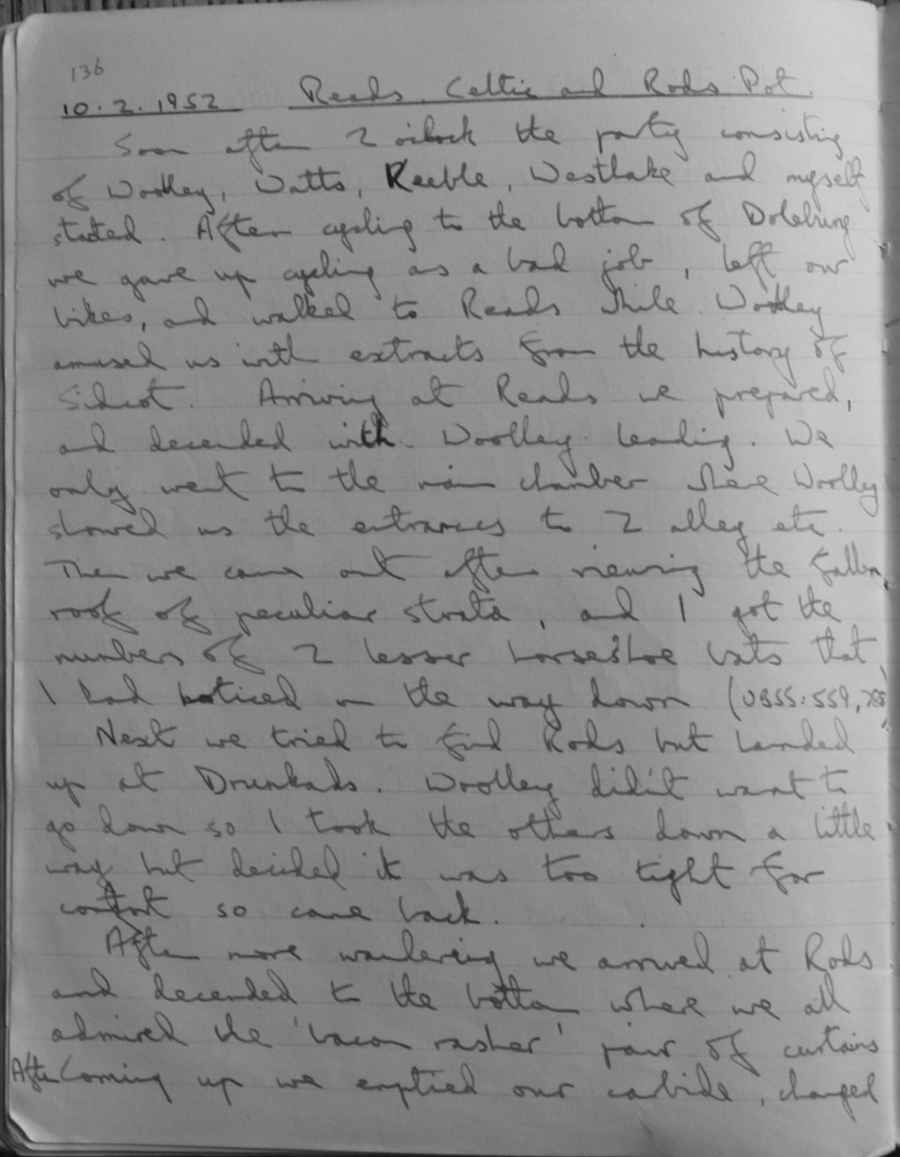 136
10.2.1952 Reads. Celtic and Rods Pot.
Soon after 2 o'clock the party consisting
of Woolley, Watts, Keeble, Westlake and myself
started. After cycling to the bottom of Dolebury
we gave up cycling as a bad job, left our
bikes, and walked to Reads while Woolley
amused us with extracts from the history of
Sidcot. Arriving at Reads we prepared,
and decended with Woolley leading. We
only went to the main chamber where Woolley
showed us the entrances to Z alley etc.
Then we came out after viewing the fallen
roof of peculiar strata, and I got the
numbers of 2 lesser horseshoe bats that
I had noticed on the way down (UBSS:559,
Next we tried to find Rods but landed
up at Drunkads. Woolley did'nt want to
go down so I took the others down a little
way but decided it was too tight for
comfort so came back.
After more wandering we arrived at Rods
and decended to the bottom where we all
admired the 'bacon rasher' pair of curtains
After Coming up we emptied our carbide, changed